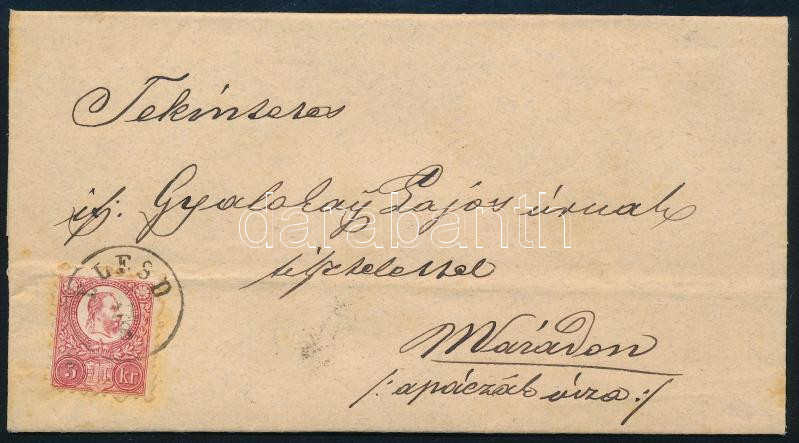 Tekintetes
ifj. Gyalokay Lajos úrnak
tisztelettel
Váradon
/: apáczák :/
ÉLESD
5 kr
darabanth